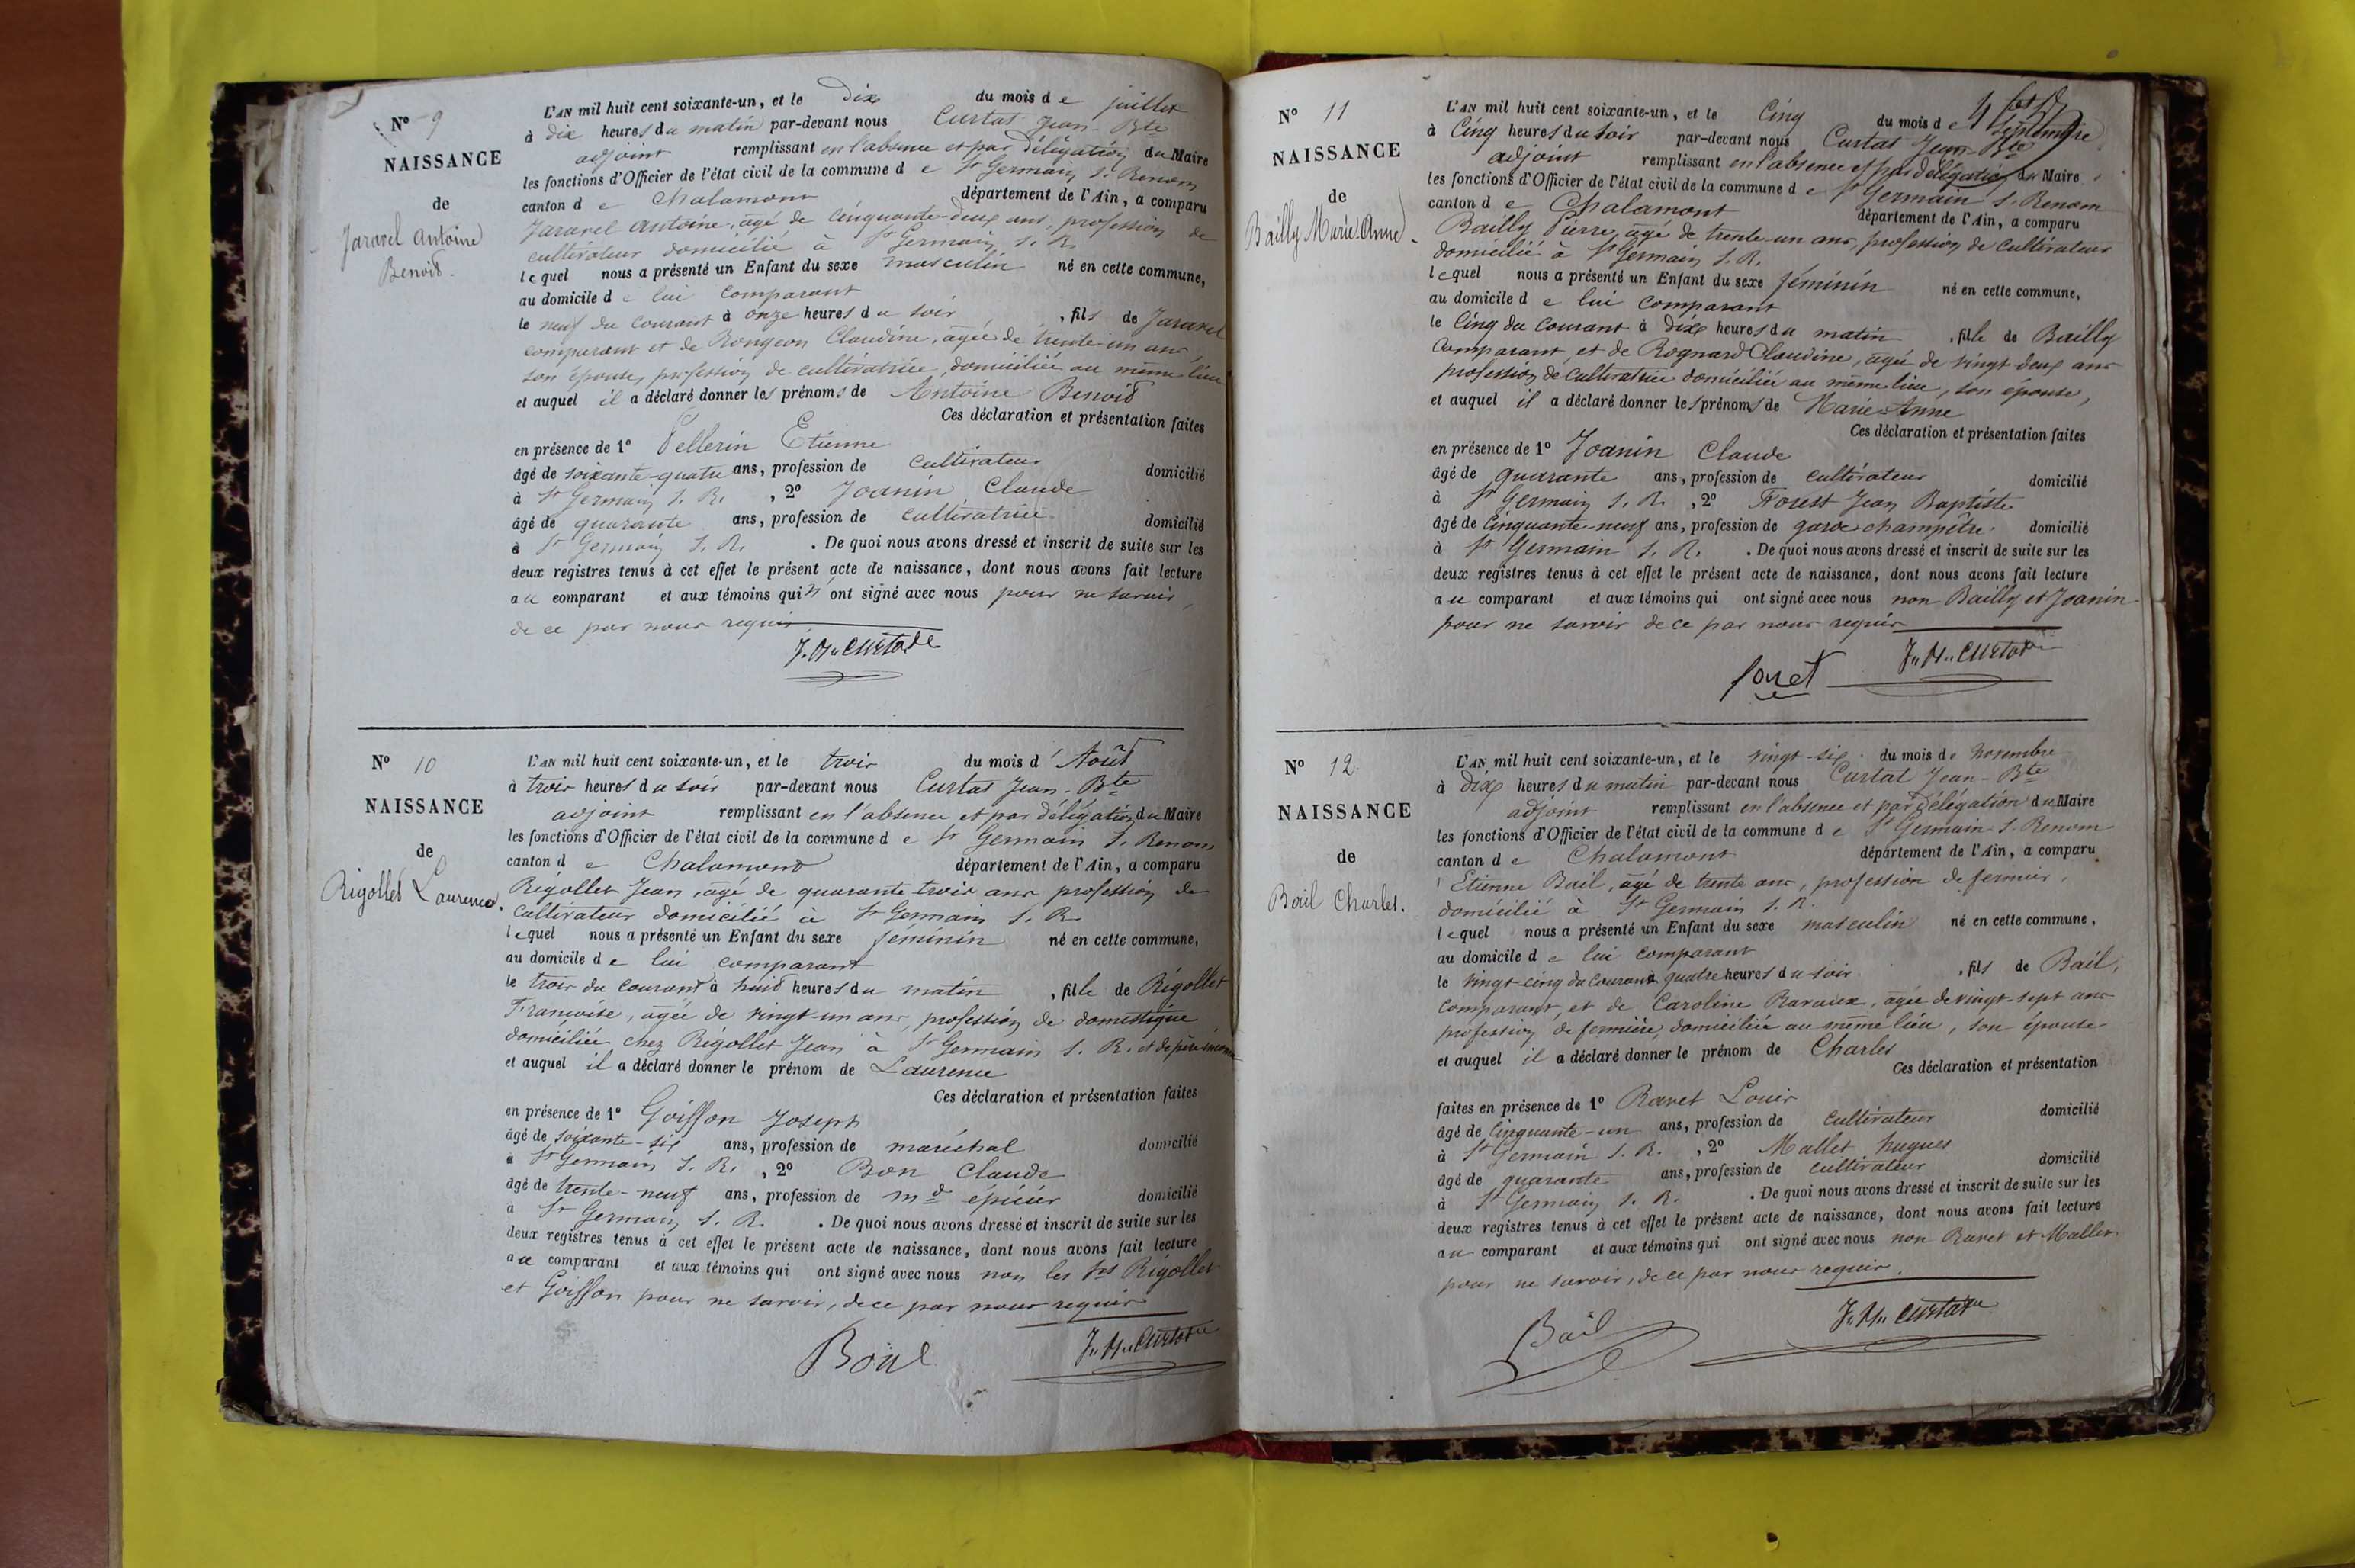 N° 9
NAISSANCE
de
Jaravel Antoine
Benoit.
L'AN mil huit cent soixante-un, et le dix du mois de juillet
à dix heures du matin par-devant nous Curtat Jean-Bte
adjoint remplissant en l'absence et par délégation du Maire
les fonctions d'Officier de l'état civil de la commune de St Germain s. Renom
canton de Chalamont département de l'Ain, a comparu
Jaravel Antoine, agé de cinquante-deux ans, profession de
cultivateur domicilié à St Germain s. R.
lequel nous a présenté un Enfant du sexe masculin né en cette commune,
au domicile de lui comparant
le neuf du courant à onze heures du soir, fils de Jaravel
comparant et de Rongeon Claudine, agée de trente-un ans
son épouse, profession de cultivatrice, domiciliée au même lieu
et auquel il a déclaré donner les prénoms de Antoine Benoit
Ces déclaration et présentation faites
en présence de 1° Pellerin Etienne
âgé de soixante-quatre ans, profession de cultivateur domicilié
à St Germain s. R. , 2° Joanin Claude
âgé de quarante ans, profession de cultivatrice domicilié
à St Germain s. R. . De quoi nous avons dressé et inscrit de suite sur les
deux registres tenus à cet effet le présent acte de naissance, dont nous avons fait lecture
au comparant et aux témoins qui n'ont signé avec nous pour ne savoir,
de ce par nous requis
J. M. Curtat
N° 10
NAISSANCE
de
Rigollet Laurence.
L'AN mil huit cent soixante-un, et le trois du mois d'Août
à trois heures du soir par-devant nous Curtat Jean-Bte
adjoint remplissant en l'absence et par délégation du Maire
les fonctions d'Officier de l'état civil de la commune de St Germain s. Renom
canton de Chalamont département de l'Ain, a comparu
Rigollet Jean, agé de quarante trois ans profession de
cultivateur domicilié à St Germain s. R.
lequel nous a présenté un Enfant du sexe féminin né en cette commune,
au domicile de lui comparant
le trois du courant à huit heures du matin, fille de Rigollet
Françoise, agée de vingt-un ans, profession de domestique
domiciliée chez Rigollet Jean à St Germain s. R. et de père inconnu
et auquel il a déclaré donner le prénom de Laurence
Ces déclaration et présentation faites
en présence de 1° Goiffon Joseph
âgé de soixante-six ans, profession de maréchal domicilié
à St Germain s. R. , 2° Bon Claude
âgé de trente-neuf ans, profession de md épicier domicilié
à St Germain s. R. . De quoi nous avons dressé et inscrit de suite sur les
deux registres tenus à cet effet le présent acte de naissance, dont nous avons fait lecture
au comparant et aux témoins qui ont signé avec nous non les srs Rigollet
et Goiffon pour ne savoir, de ce par nous requis
J. M. Curtat
N° 11
NAISSANCE
de
Bailly Marie-Anne
L'AN mil huit cent soixante-un, et le Cinq du mois de Septembre
à Cinq heures du soir par-devant nous Curtat Jean-Bte
adjoint remplissant en l'absence et par délégation du Maire
les fonctions d'Officier de l'état civil de la commune de St Germain s. Renom
canton de Chalamont département de l'Ain, a comparu
Bailly Pierre, agé de trente-un ans, profession de cultivateur
domicilié à St Germain s. R.
lequel nous a présenté un Enfant du sexe féminin né en cette commune,
au domicile de lui comparant
le Cinq du courant à dix heures du matin, fille de Bailly
comparant, et de Rognard Claudine, agée de vingt-deux ans
profession de cultivatrice domiciliée au même lieu, son épouse,
et auquel il a déclaré donner les prénoms de Marie-Anne
Ces déclaration et présentation faites
en présence de 1° Joanin Claude
âgé de quarante ans, profession de cultivateur domicilié
à St Germain s. R. , 2° Forest Jean Baptiste
âgé de Cinquante-neuf ans, profession de garde-champêtre domicilié
à St Germain s. R. . De quoi nous avons dressé et inscrit de suite sur les
deux registres tenus à cet effet le présent acte de naissance, dont nous avons fait lecture
au comparant et aux témoins qui ont signé avec nous non Bailly et Joanin
pour ne savoir de ce par nous requis
J. M. Curtat
foret
N° 12
NAISSANCE
de
Bail Charles.
L'AN mil huit cent soixante-un, et le vingt-six du mois de Novembre
à dix heures du matin par-devant nous Curtat Jean-Bte
adjoint remplissant en l'absence et par délégation du Maire
les fonctions d'Officier de l'état civil de la commune de St Germain-s-Renom
canton de Chalamont département de l'Ain, a comparu
Etienne Bail, agé de trente ans, profession de fermier,
domicilié à St Germain s. R.
lequel nous a présenté un Enfant du sexe masculin né en cette commune,
au domicile de lui comparant
le vingt-cinq du courant à quatre heures du soir, fils de Bail,
comparant, et de Caroline Ravaux, agée de vingt-sept ans
profession de fermière, domiciliée au même lieu, son épouse
et auquel il a déclaré donner le prénom de Charles
Ces déclaration et présentation
faites en présence de 1° Ravet Louis
âgé de cinquante-un ans, profession de cultivateur domicilié
à St Germain s. R. , 2° Mallet hugues
âgé de quarante ans, profession de cultivateur domicilié
à St Germain s. R. . De quoi nous avons dressé et inscrit de suite sur les
deux registres tenus à cet effet le présent acte de naissance, dont nous avons fait lecture
au comparant et aux témoins qui ont signé avec nous non Ravet et Mallet
pour ne savoir, de ce par nous requis.
J. M. Curtat
Bail